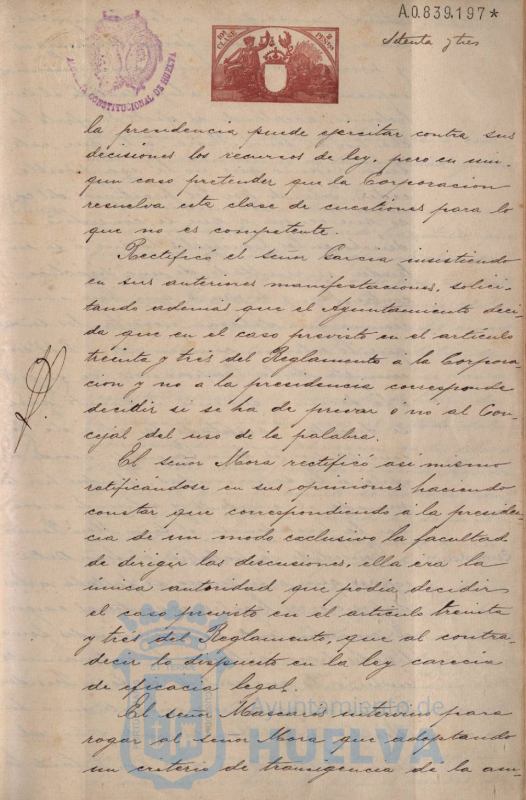 A.0.839.197*
Setenta y tres
10ª CLASE
2 PESETAS
CONSTITUCIONAL DE HUELVA
la presidencia puede ejercitar contra sus
decisiones los recursos de ley, pero en nin-
gun caso pretender que la Corporacion
resuelva esta clase de cuestiones para lo
que no es competente.
Rectificó el señor Garcia insistiendo
en sus anteriores manifestaciones, solici-
tando además que el Ayuntamiento deci-
da que en el caso previsto en el artículo
treinta y tres del Reglamento á la Corpora-
cion y no á la presidencia corresponde
decidir si se ha de privar ó no al Con-
cejal del uso de la palabra.
El señor Mora rectificó asi mismo
ratificándose en sus opiniones haciendo
constar que correspondiendo á la presiden-
cia de un modo exclusivo la facultad
de dirigir las discusiones, ella era la
única autoridad que podia decidir
el caso previsto en el artículo treinta
y tres del Reglamento, que al contra-
decir lo dispuesto en la ley carecia
de eficacia legal.
El señor Mascarós intervino para
rogar al señor Mora que adoptando
un criterio de transigencia de la am-
Ayuntamiento de
HUELVA